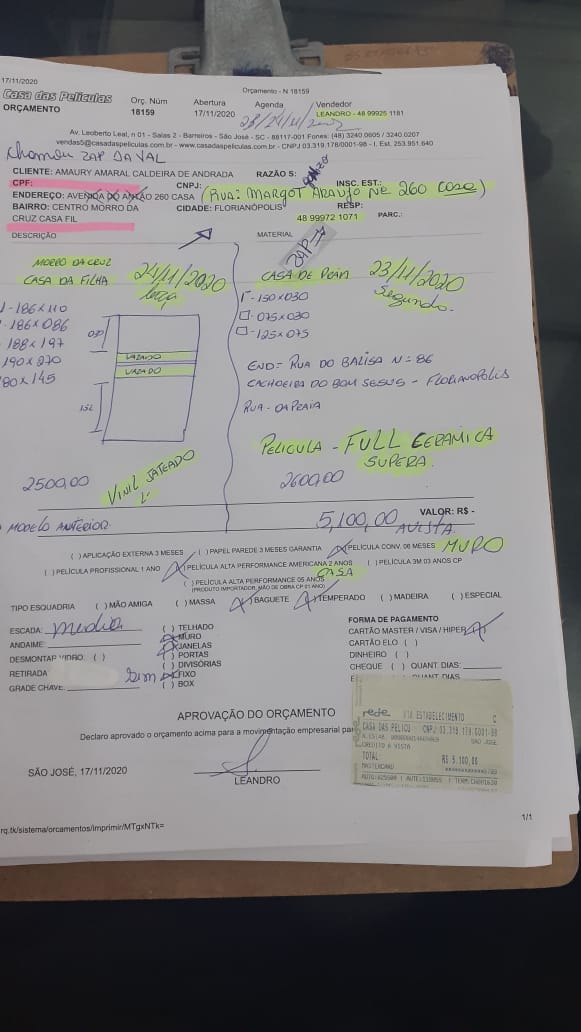 17/11/2020
Orçamento - N 18159
Casa das Películas
ORÇAMENTO
Orç. Núm
18159
Abertura
17/11/2020
Agenda
Vendedor
LEANDRO - 48 99925 1181
Av. Leoberto Leal, n 01 - Salas 2 - Barreiros - São José - SC - 88117-001 Fones: (48) 3240.0605 / 3240.0207
vendas5@casadaspeliculas.com.br - www.casadaspeliculas.com.br - CNPJ 03.319.178/0001-98 - I. Est. 253.951.640
Chamou ZAP DA VAL
CLIENTE: AMAURY AMARAL CALDEIRA DE ANDRADA
RAZÃO S:
CPF:
CNPJ:
INSC. EST.:
ENDEREÇO: AVENIDA DO ANTÃO 260 CASA
(RUA: MARGOT ARAUJO Nº 260 CASA)
BAIRRO: CENTRO MORRO DA
CRUZ CASA FIL
CIDADE: FLORIANÓPOLIS
RESP:
48 99972 1071
PARC.:
DESCRIÇÃO
MATERIAL
ZAP
MORRO DA CRUZ
CASA DA FILHA
24/11/2020
terça
CASA DE PRAIA
23/11/2020
Segunda.
1 - 186 x 110
- 186 x 086
188 x 197
190 x 270
80 x 145
VAZADO
VAZADO
- 150 x 030
- 075 x 030
- 125 x 075
END= RUA DO BALISA N= 86
CACHOEIRA DO BOM JESUS - FLORIANOPOLIS
RUA - DA PRAIA
PELICULA - FULL CERAMICA
SUPERA.
2500,00
VINIL JATEADO
2600,00
MODELO ANTERIOR
5,100,00
AVISTA
VALOR: R$ -
( ) APLICAÇÃO EXTERNA 3 MESES
( ) PAPEL PAREDE 3 MESES GARANTIA
(X) PELÍCULA CONV. 06 MESES
MURO
( ) PELÍCULA PROFISSIONAL 1 ANO
(X) PELÍCULA ALTA PERFORMANCE AMERICANA 2 ANOS
( ) PELÍCULA 3M 03 ANOS CP
CASA
( ) PELÍCULA ALTA PERFORMANCE 05 ANOS
(PRODUTO IMPORTADOR, MÃO DE OBRA CP 01 ANO)
TIPO ESQUADRIA
( ) MÃO AMIGA
( ) MASSA
(X) BAGUETE
(X) TEMPERADO
( ) MADEIRA
( ) ESPECIAL
ESCADA: media
ANDAIME:
DESMONTAR VIDRO: ( )
RETIRADA
Sim
GRADE CHAVE:
( ) TELHADO
(X) MURO
(X) JANELAS
( ) PORTAS
( ) DIVISÓRIAS
(X) FIXO
( ) BOX
FORMA DE PAGAMENTO
CARTÃO MASTER / VISA / HIPER (X)
CARTÃO ELO ( )
DINHEIRO ( )
CHEQUE ( ) QUANT DIAS:
QUANT DIAS
APROVAÇÃO DO ORÇAMENTO
Declaro aprovado o orçamento acima para a movimentação empresarial
SÃO JOSÉ, 17/11/2020
LEANDRO
rede
VIA ESTABELECIMENTO
CASA DAS PELICU
CNPJ: 03.319.178.0001-98
SAO JOSE
CREDITO A VISTA
TOTAL:
R$ 5.100,00
MASTERCARD
rq.tk/sistema/orcamentos/imprimir/MTgxNTk=
1/1